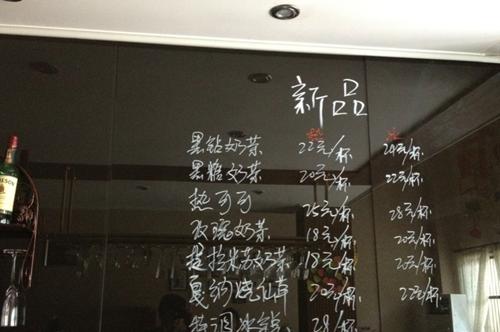 新品
黑钻奶茶 22元/杯 24元/杯
黑糖奶茶 20元/杯 22元/杯
热可可 25元/杯 28元/杯
玫瑰奶茶 18元/杯 20元/杯
提拉米苏奶茶 18元/杯 20元/杯
戛纳烧仙草 20元/杯 22元/杯
特调 28/杯